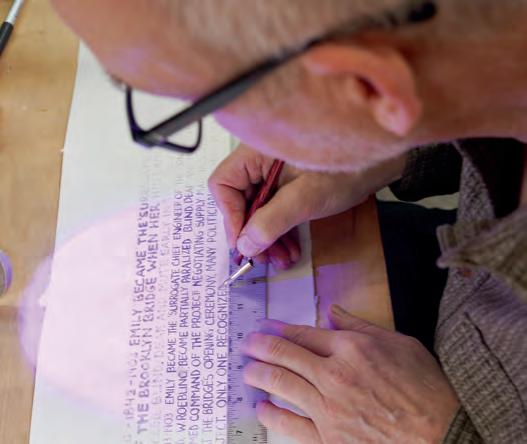 1903 EMILY BECAME THE SURROGA
THE BROOKLYN BRIDGE WHEN HER
BLIND, DEAF AND MUTE. EARLY
1903 EMILY BECAME THE SURROGATE CHIEF ENGINEER OF THE
W. ROEBLING BECAME PARTIALLY PARALIZED, BLIND, DEAF
MED COMMAND OF THE PROJECT NEGOTIATING SUPPLY MA
T THE BRIDGES OPENING CEREMONY, MANY POLITICIAN
JECT. ONLY ONE RECOGNIZED